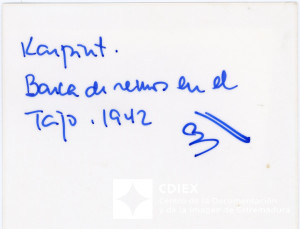 Karpint.
Barca de remos en el
Tajo. 1942
CDIEX